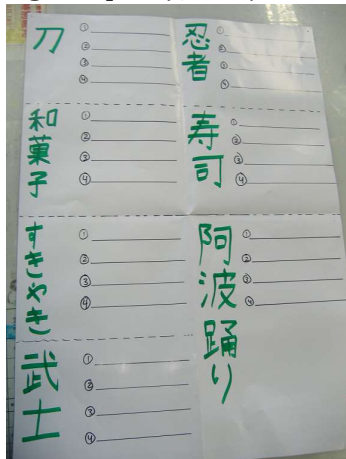 刀
①
②
③
④
和菓子
①
②
③
④
すきやき
①
②
③
④
武士
①
②
③
④
忍者
①
②
③
④
寿司
①
②
③
④
阿波踊り
①
②
③
④